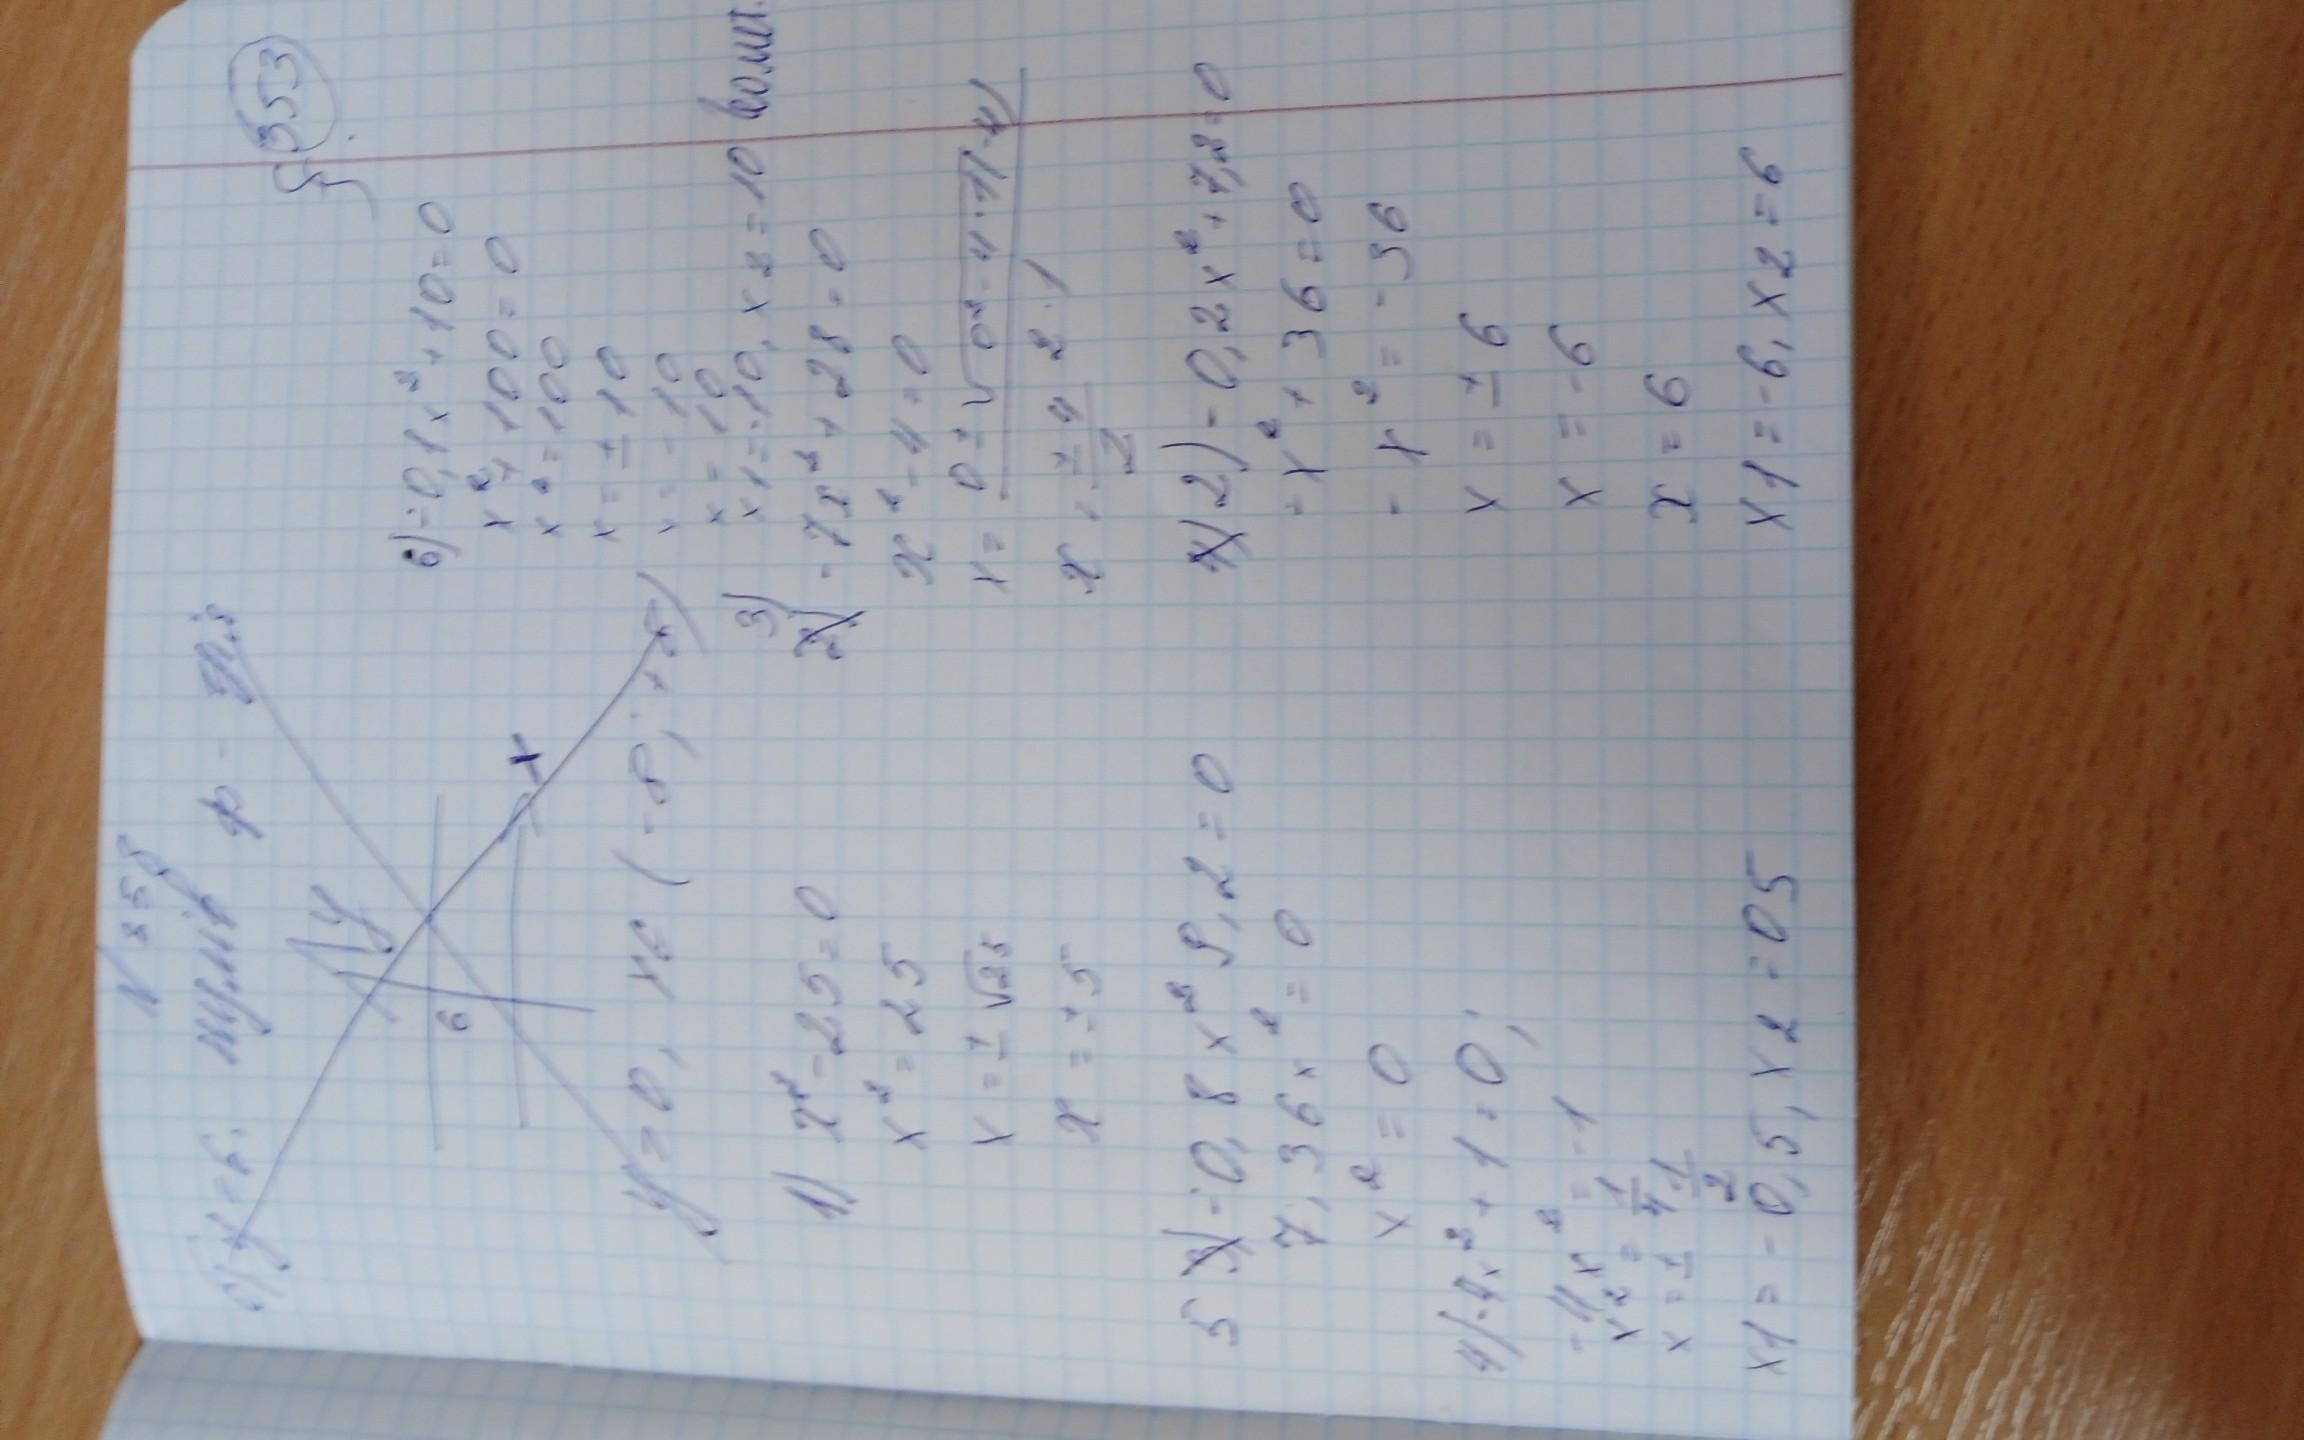 353
y = 0, x∈ (-∞; +∞)
1) x² - 25 = 0
x² = 25
x = ± √25
x = ± 5
5) -0,8x² 9,2 = 0
7,36x² = 0
x² = 0
4) -4x² + 1 = 0;
-4x² = -1
x² = 1/4
x = ± 1/2
x1 = -0,5, x2 = 05
6) -0,1x² + 10 = 0
x² + 100 = 0
x² = 100
x = ± 10
x = -10
x = 10
x1 = -10, x2 = 10
3) -7x² + 28 = 0
x² - 4 = 0
x = 0 ± √0² - 4 · 1(-4)
2 · 1
x = ± 4/2
2) -0,2x² + 7,2 = 0
-x² + 36 = 0
-x² = -36
x = ± 6
x = -6
x = 6
x1 = -6, x2 = 6